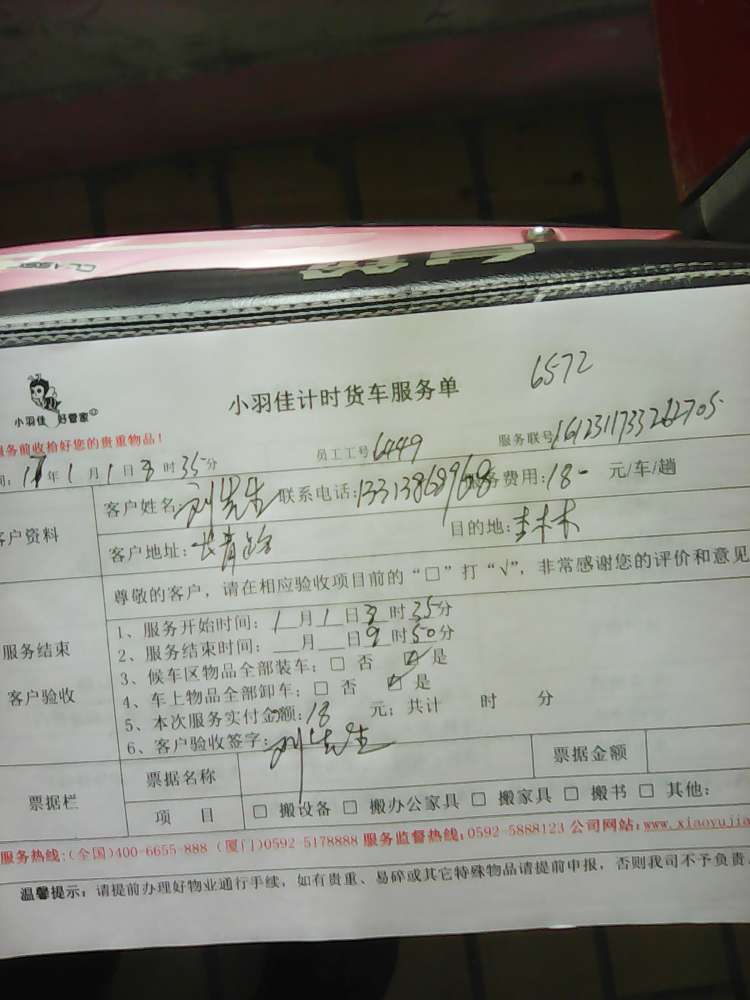 6572
小羽佳计时货车服务单
小羽佳 好管家
服务前收拾好您的贵重物品！
员工工号 6449
服务联号
17年1月1日 时35分
客户资料
客户姓名：刘先生 联系电话：13313868968 费用：18- 元/车/趟
客户地址：长青路 目的地：
尊敬的客户，请在相应验收项目前的“□”打“√”，非常感谢您的评价和意见
服务结束
客户验收
1、服务开始时间：1月1日 时35分
2、服务结束时间：__月__日9时50分
3、候车区物品全部装车：□ 否 ☑ 是
4、车上物品全部卸车：□ 否 ☑ 是
5、本次服务实付金额：18 元；共计 时 分
6、客户验收签字：刘先生
票据栏
票据名称
票据金额
项 目
□ 搬设备 □ 搬办公家具 □ 搬家具 □ 搬书 □ 其他：
服务热线：(全国)400-6655-888 (厦门)0592-5178888 服务监督热线：0592-5888123 公司网站：www.xiaoyujia
温馨提示：请提前办理好物业通行手续，如有贵重、易碎或其它特殊物品请提前申报，否则我司不予负责